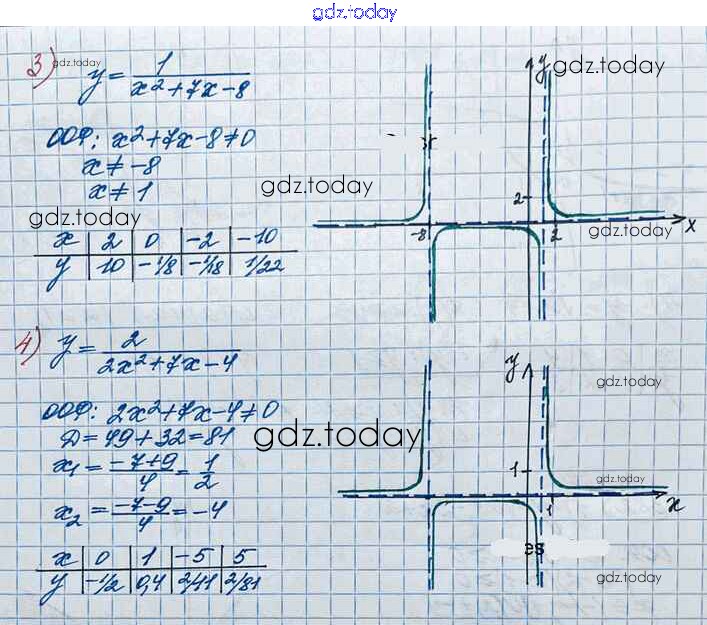 gdz.today
3) y = 1/(x²+7x-8)
gdz.today
gdz.today
ООФ: x²+7x-8≠0
x≠-8
x≠1
gdz.today
gdz.today
x | 2 | 0 | -2 | -10
y | 10 | -1/8 | -1/18 | 1/22
y
2
-8
2
x
gdz.today
4) y = 2/(2x²+7x-4)
ООФ: 2x²+7x-4≠0
Д=49+32=81
gdz.today
x₁ = (-7+9)/4 = 1/2
x₂ = (-7-9)/4 = -4
x | 0 | 1 | -5 | 5
y | -1/2 | 0,4 | 2/11 | 2/81
y
gdz.today
1
gdz.today
1
x
es
gdz.today